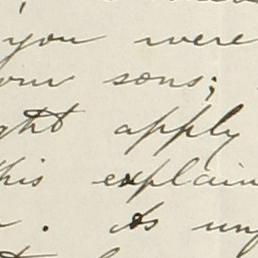 you were
our sons;
ght apply
this explain
. As un